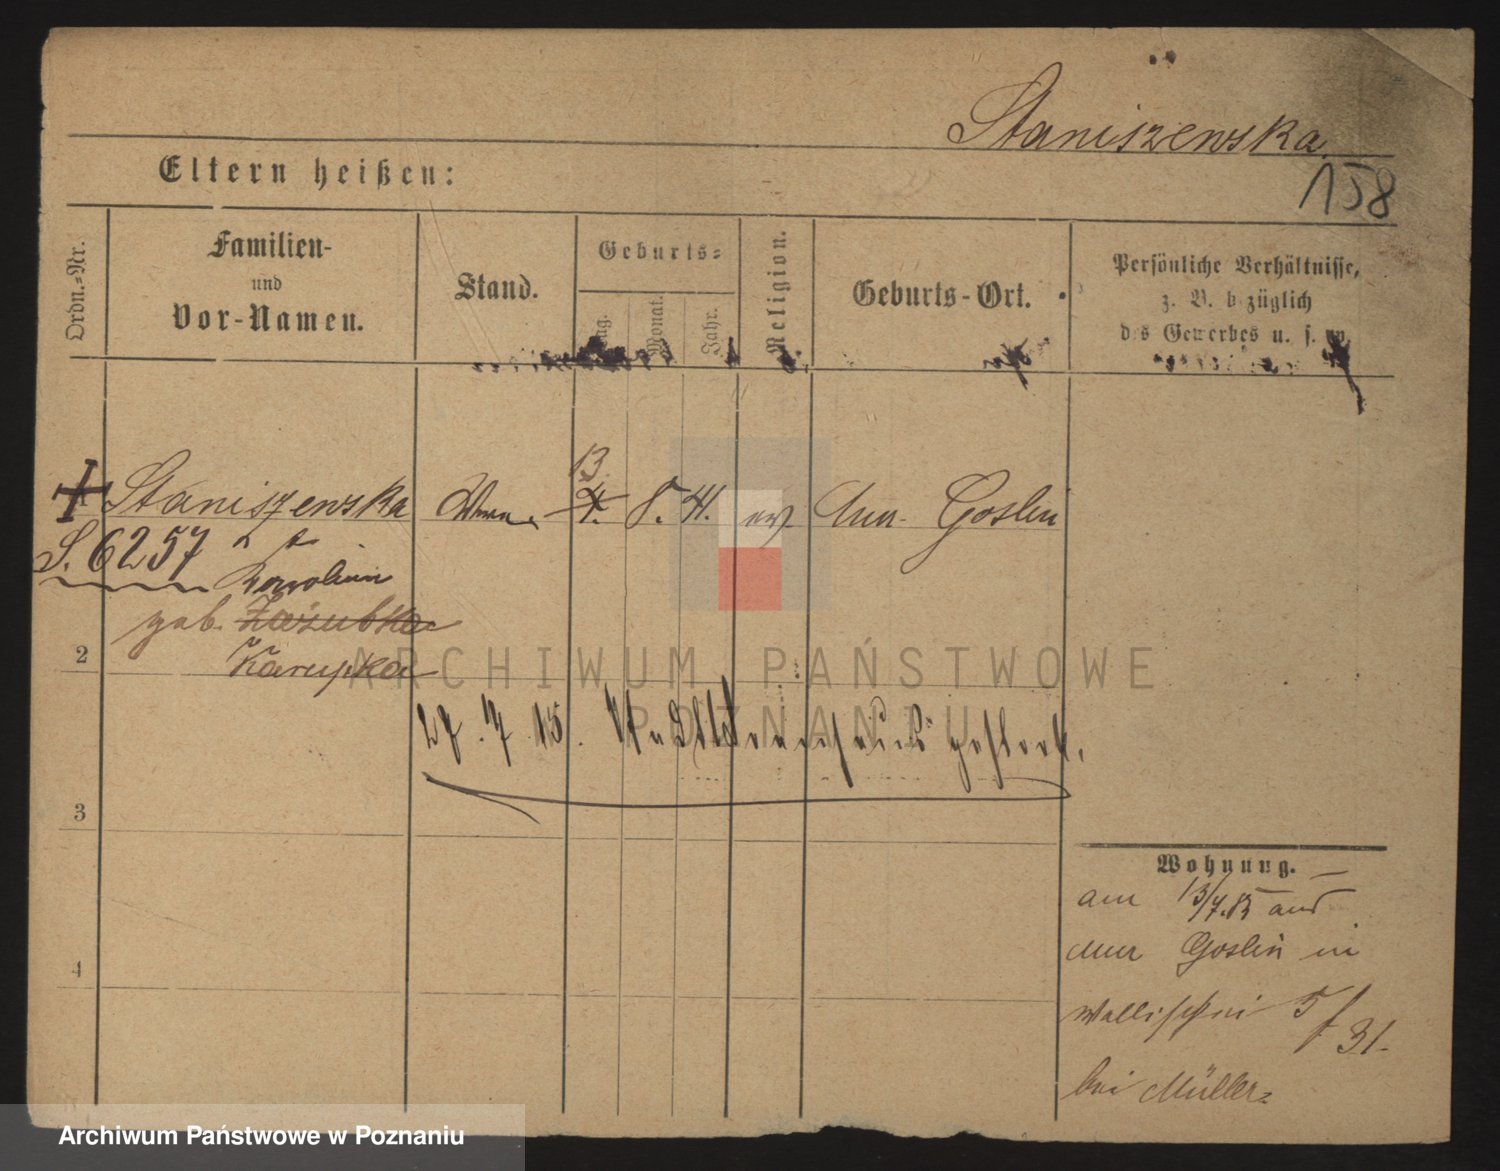 Staniszewska
158
Eltern heißen:
Ordn.-Nr.
Familien-
und
Vor-Namen.
Stand.
Geburts-
Tag.
Monat.
Jahr.
Religion.
Geburts-Ort.
Persönliche Verhältnisse,
z. B. bezüglich
des Gewerbes u. s. w.
13.
Staniszewska 4. 8. 41. Mur. Goslin
S. 6257
geb. Zazubka
2
Karupka
27. 7. 15. gestorb.
3
4
Wohnung.
am 13/7. aus
Mur Goslin in
Wallischei 5/31.
bei Müller
ARCHIWUM PAŃSTWOWE
POZNANIU
Archiwum Państwowe w Poznaniu